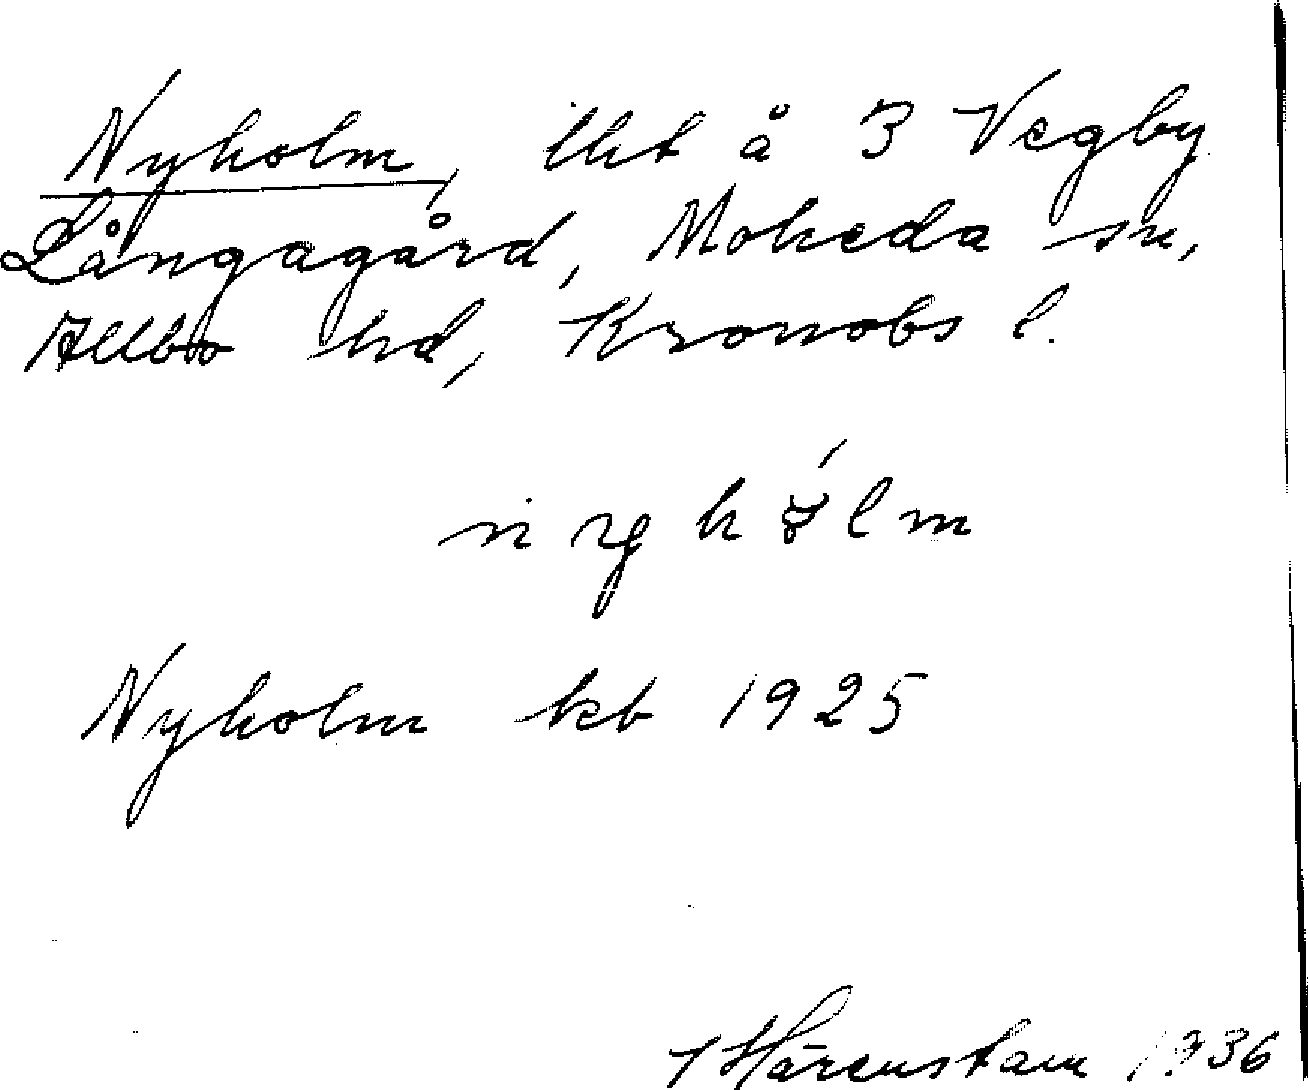 Nyholm, lht å 3 Vegby
Långagård, Moheda sn,
Allbo hd, Kronobs l.
Nyholm kb 1925
Härenstam 1936